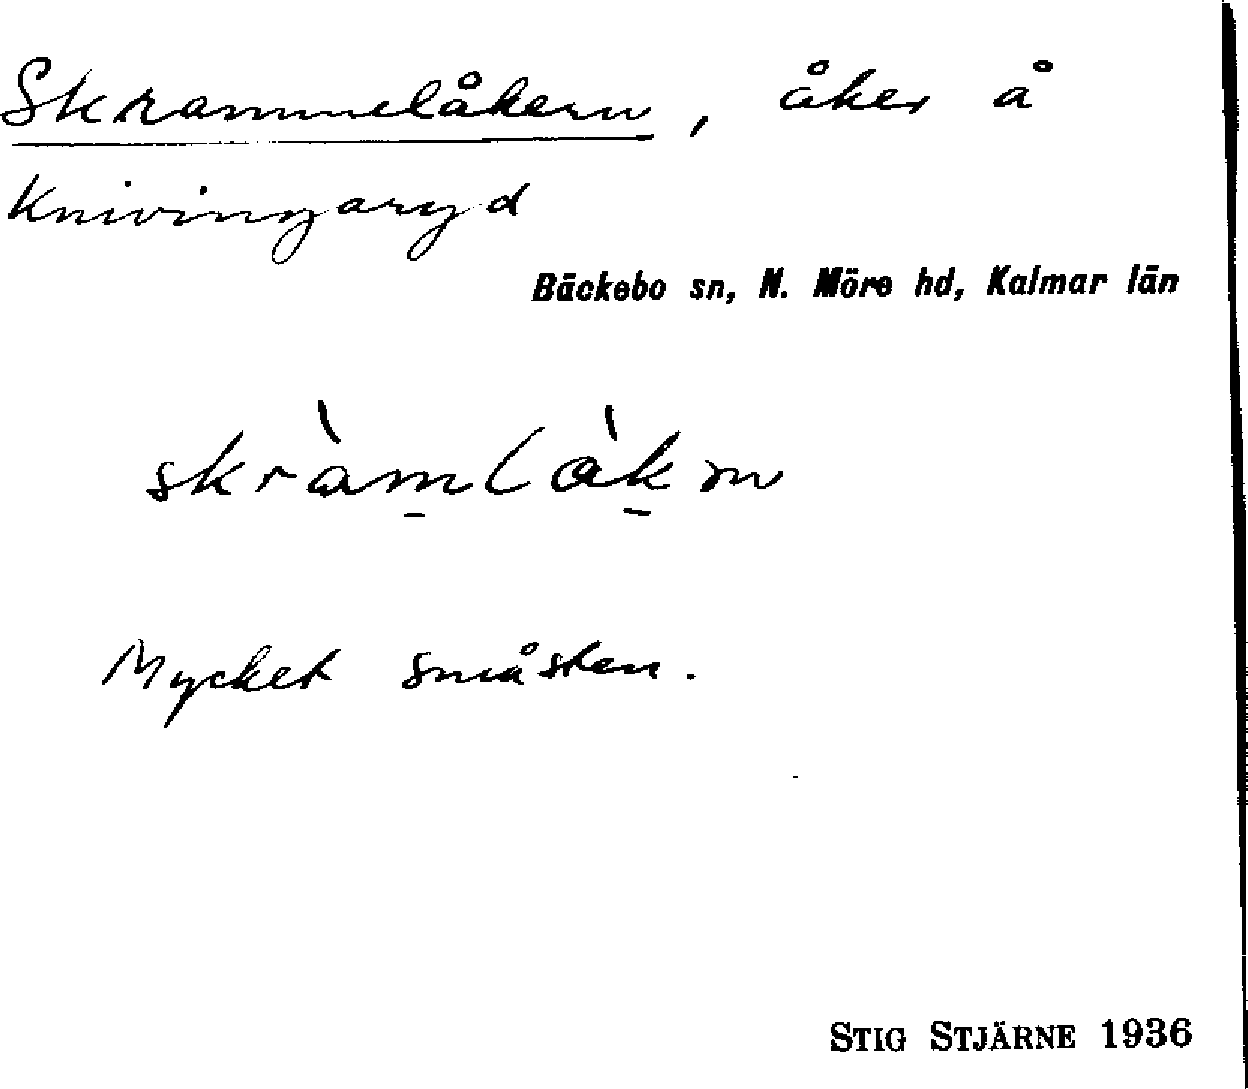 Skrammelåkern, åker å
Knivingaryd
Bäckebo sn, N. Möre hd, Kalmar län
skràmlàkɳ
Mycket småsten.
STIG STJÄRNE 1936